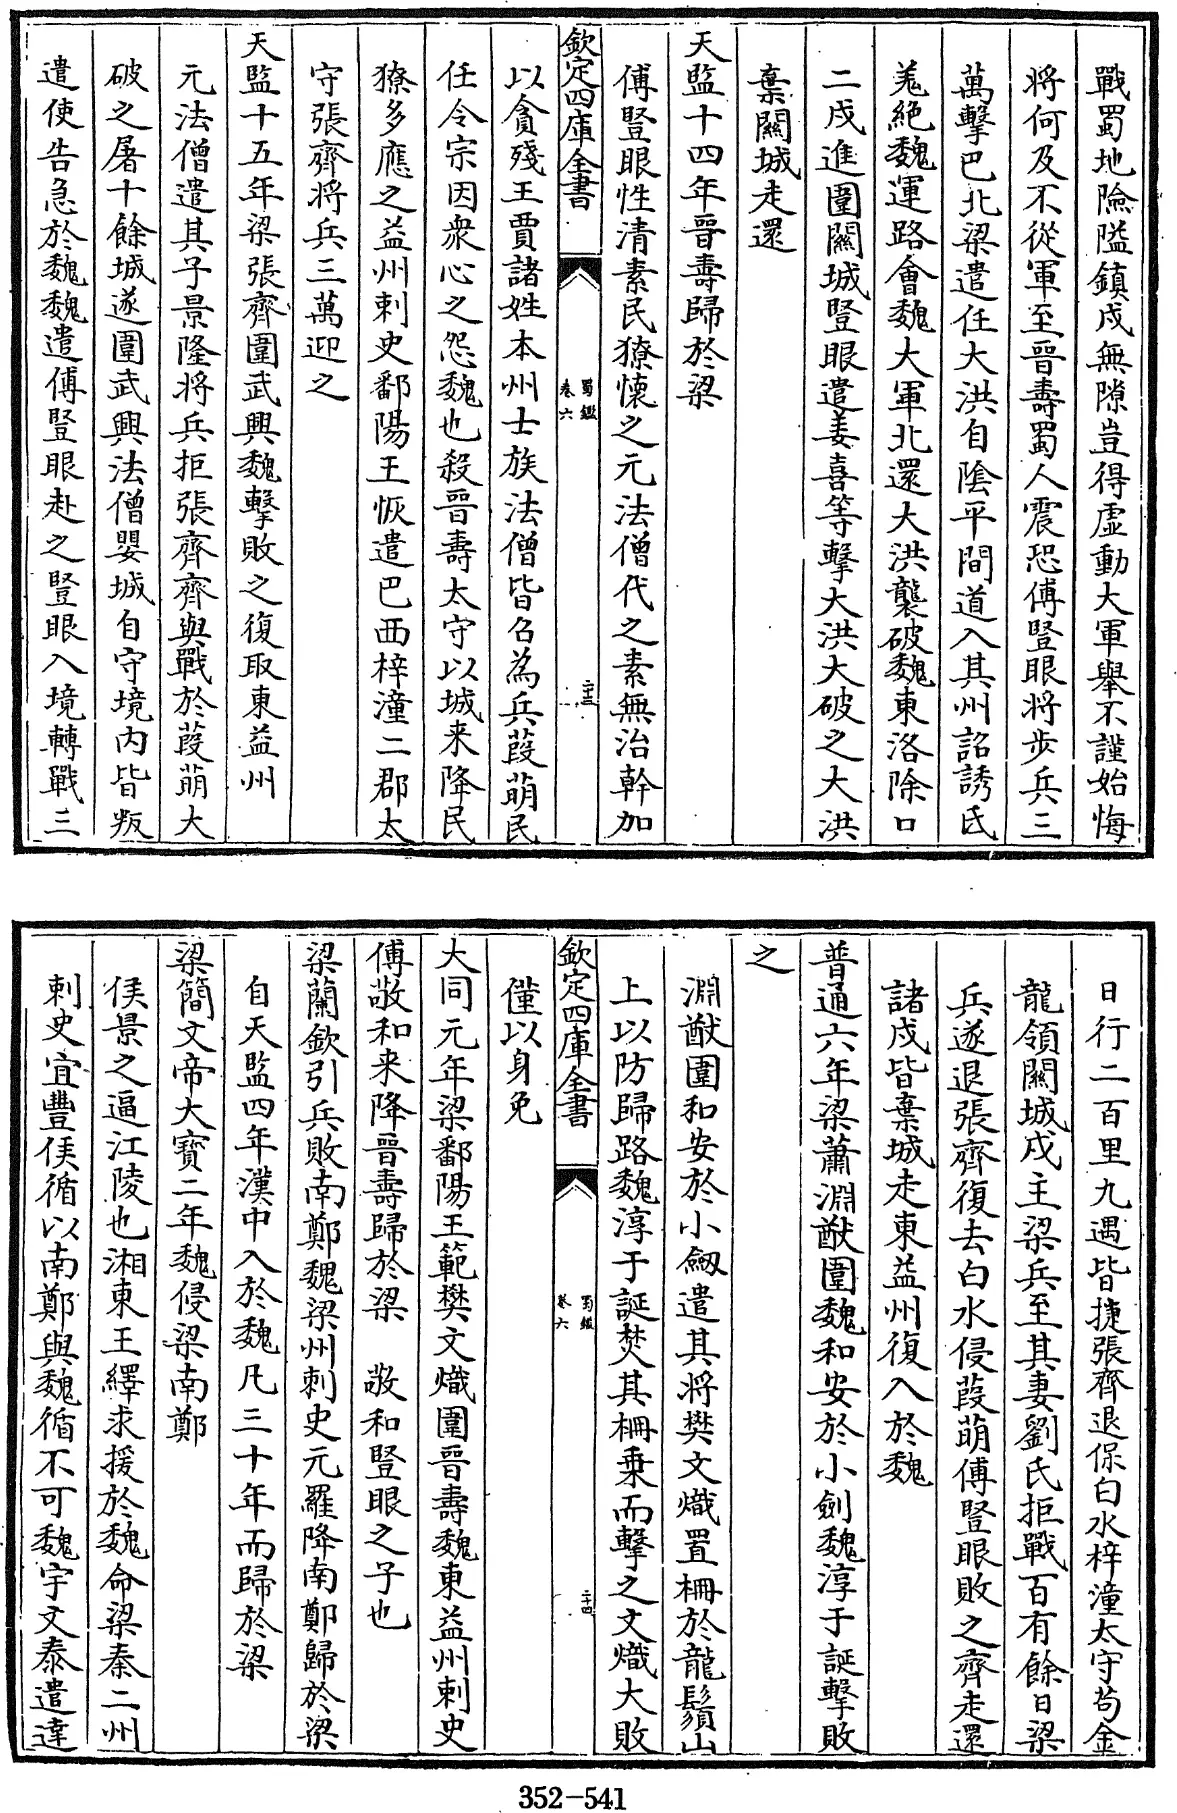 戰蜀地險隘鎮戍無隙豈得虛動大軍舉不謹始悔
將何及不從軍至晉壽蜀人震恐傅豎眼將步兵三
萬擊巴北梁遣任大洪自陰平間道入其州詔誘氐
羌絕魏運路會魏大軍北還大洪襲破魏東洛除口
二戍進圍關城豎眼遣姜喜等擊大洪大破之大洪
棄關城走還
天監十四年晉壽歸於梁
傅豎眼性清素民獠懷之元法僧代之素無治幹加
欽定四庫全書
蜀鑑
卷六
二十三
以貪殘王賈諸姓本州士族法僧皆召為兵葭萌民
任令宗因衆心之怨魏也殺晉壽太守以城来降民
獠多應之益州刺史鄱陽王恢遣巴西梓潼二郡太
守張齊將兵三萬迎之
天監十五年梁張齊圍武興魏擊敗之復取東益州
元法僧遣其子景隆將兵拒張齊齊與戰於葭萌大
破之屠十餘城遂圍武興法僧嬰城自守境內皆叛
遣使告急於魏魏遣傅豎眼赴之豎眼入境轉戰三
日行二百里九遇皆捷張齊退保白水梓潼太守茍金
龍領關城戍主梁兵至其妻劉氏拒戰百有餘日梁
兵遂退張齊復去白水侵葭萌傅豎眼敗之齊走還
諸戍皆棄城走東益州復入於魏
普通六年梁蕭淵猷圍魏和安於小劍魏淳于誕擊敗
之
淵猷圍和安於小劔遣其將樊文熾置柵於龍鬚山
上以防歸路魏淳于誕焚其柵乗而擊之文熾大敗
欽定四庫全書
蜀鑑
卷六
二十四
僅以身免
大同元年梁鄱陽王範樊文熾圍晉壽魏東益州刺史
傅敬和来降晉壽歸於梁　敬和豎眼之子也
梁蘭欽引兵敗南鄭魏梁州刺史元羅降南鄭歸於梁
自天監四年漢中入於魏凡三十年而歸於梁
梁簡文帝大寶二年魏侵梁南鄭
侯景之逼江陵也湘東王繹求援於魏命梁秦二州
刺史宜豐侯循以南鄭與魏循不可魏宇文泰遣達
352-541